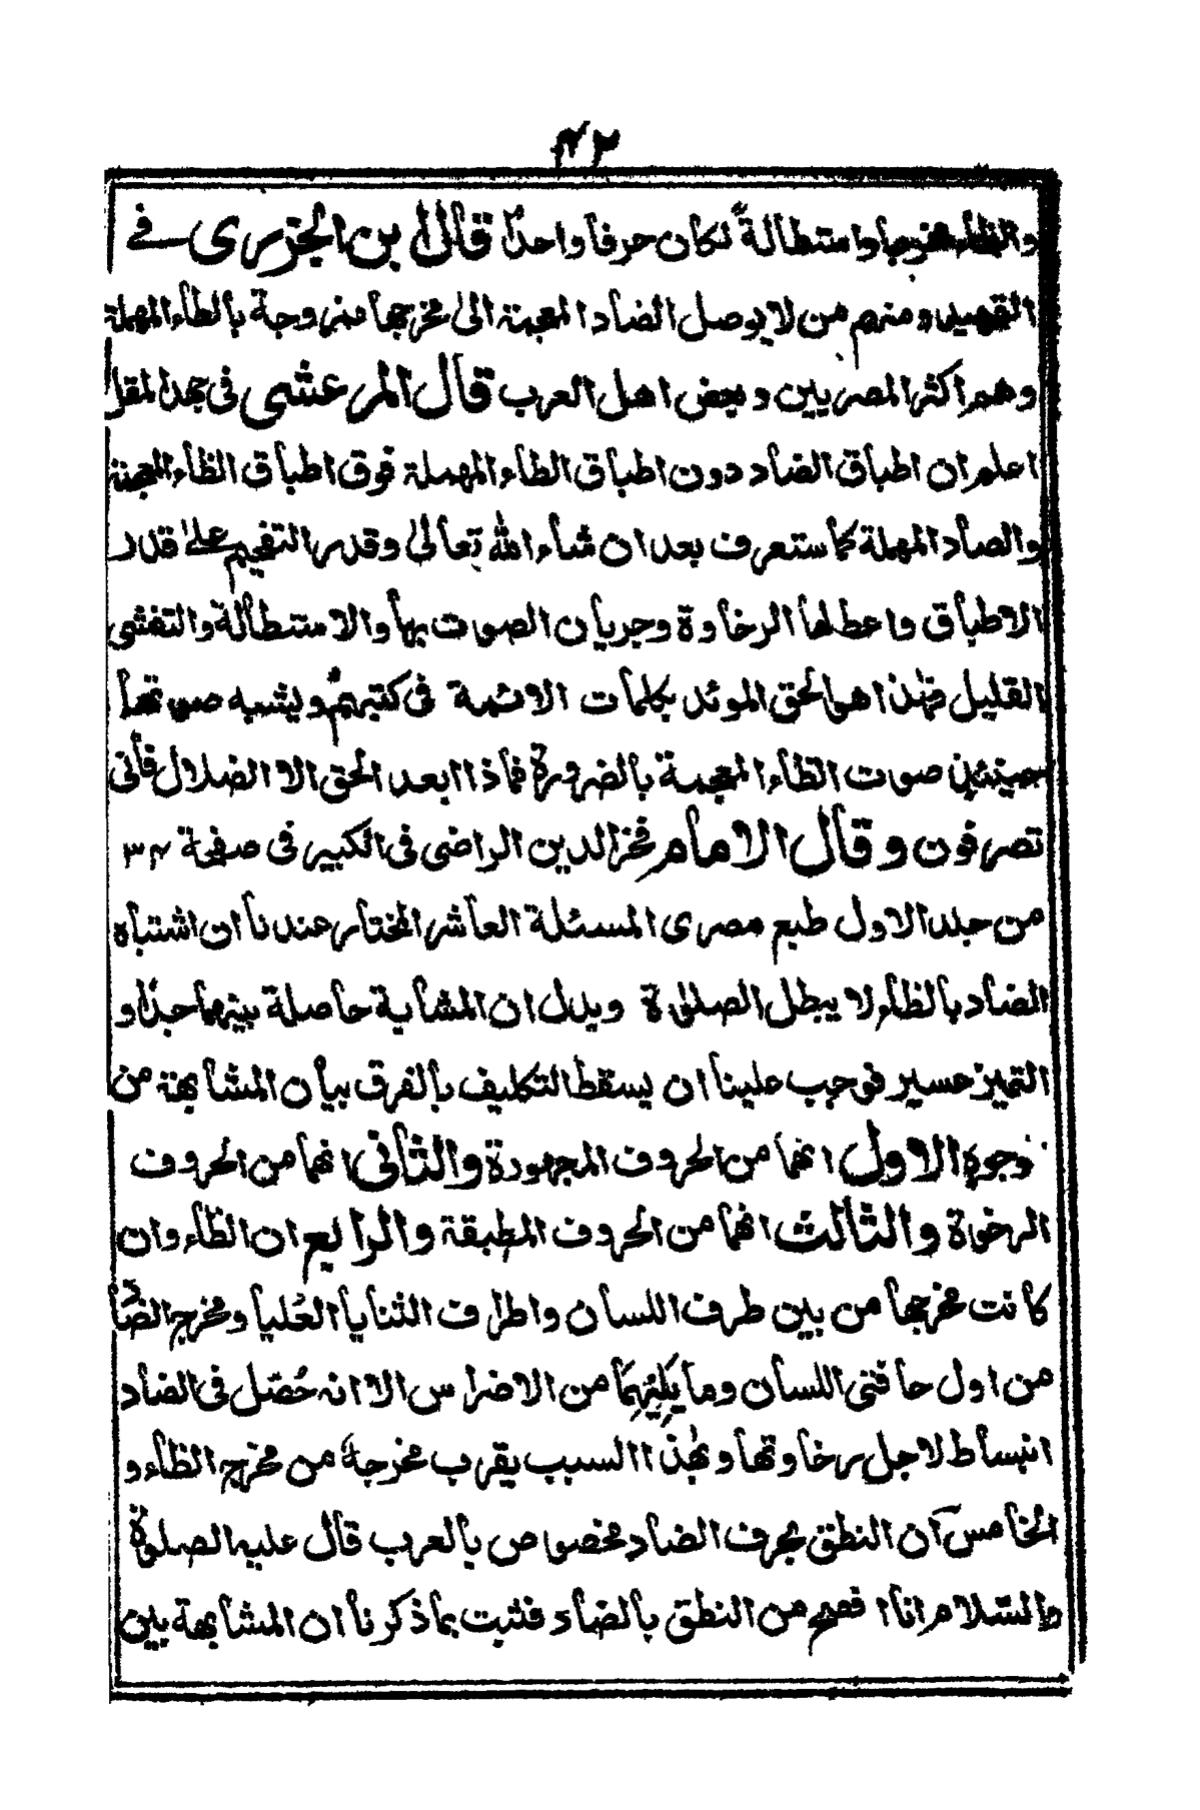 ۴۲
والظاء مخرجا واستطالةً لكان حرفا واحدًا قال بن الجزرى فے
التمهيد ومنهم من لا يوصل الضاد المعجمة الىٰ مخرجها ممزوجة بالطاء المهملة
وهم اكثر المصريين وبعض اهل العرب قال المرعشى فى جهد المقل
اعلم ان اطباق الضاد دون اطباق الطاء المهملة فوق اطباق الظاء المعجمة
والصاد المهملة كما ستعرف بعد ان شاء الله تعالىٰ وقدر التفخيم علىٰ قدر
الاطباق واعطاها الرخاوة وجريان الصوت بها والاستطالة والتفشى
القليل فهٰذا هو الحق الموئد بكلمات الائمة فى كتبهم ويشبه صوتها
حينئذٍ صوت الظاء المعجمة بالضرورة فماذا بعد الحق الا الضلال فأنى
تصرفون وقال الامام فخر الدين الراضى فى الكبير فى صفحة ٣٤
من جلد الاول طبع مصرى المسئلة العاشر المختار عندنا ان اشتباه
الضاد بالظاء لا يبطل الصلٰوة ويدل ان المشابة حاصلة بينهما جدًا و
التميز عسير فوجب علينا ان يسقط التكليف بالفرق بيان المشابهة من
وجوهٍ الاول انهما من الحروف المجهورة والثانى انهما من الحروف
الرخوة والثالث انهما من الحروف المطبقة والرابع ان الظاء وان
كانت مخرجها من بين طرف اللسان واطراف الثنايا العُليا ومخرج الضاد
من اول حافتى اللسان وما يَلِيْهِمَا من الاضراس الا انه حُصّل فى الضاد
انبساط لاجل رخاوتها وبهٰذا السبب يقرب مخرجهٗ من مخرج الظاء و
الخامس ان النطق بحرف الضاد مخصوص بالعرب قال عليه الصلوة
والسّلام انا افصح من النطق بالضاد فثبت بما ذكرنا ان المشابهة بين